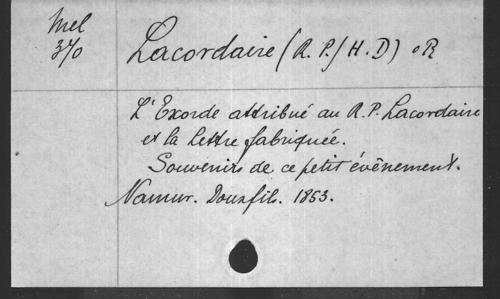 Mel
370
Lacordaire (R. P./ H. D) oR
L'Exorde attribué au R. P. Lacordaire
et la lettre fabriquée.
Souvenirs de ce petit événement.
Namur. Douxfils. 1853.